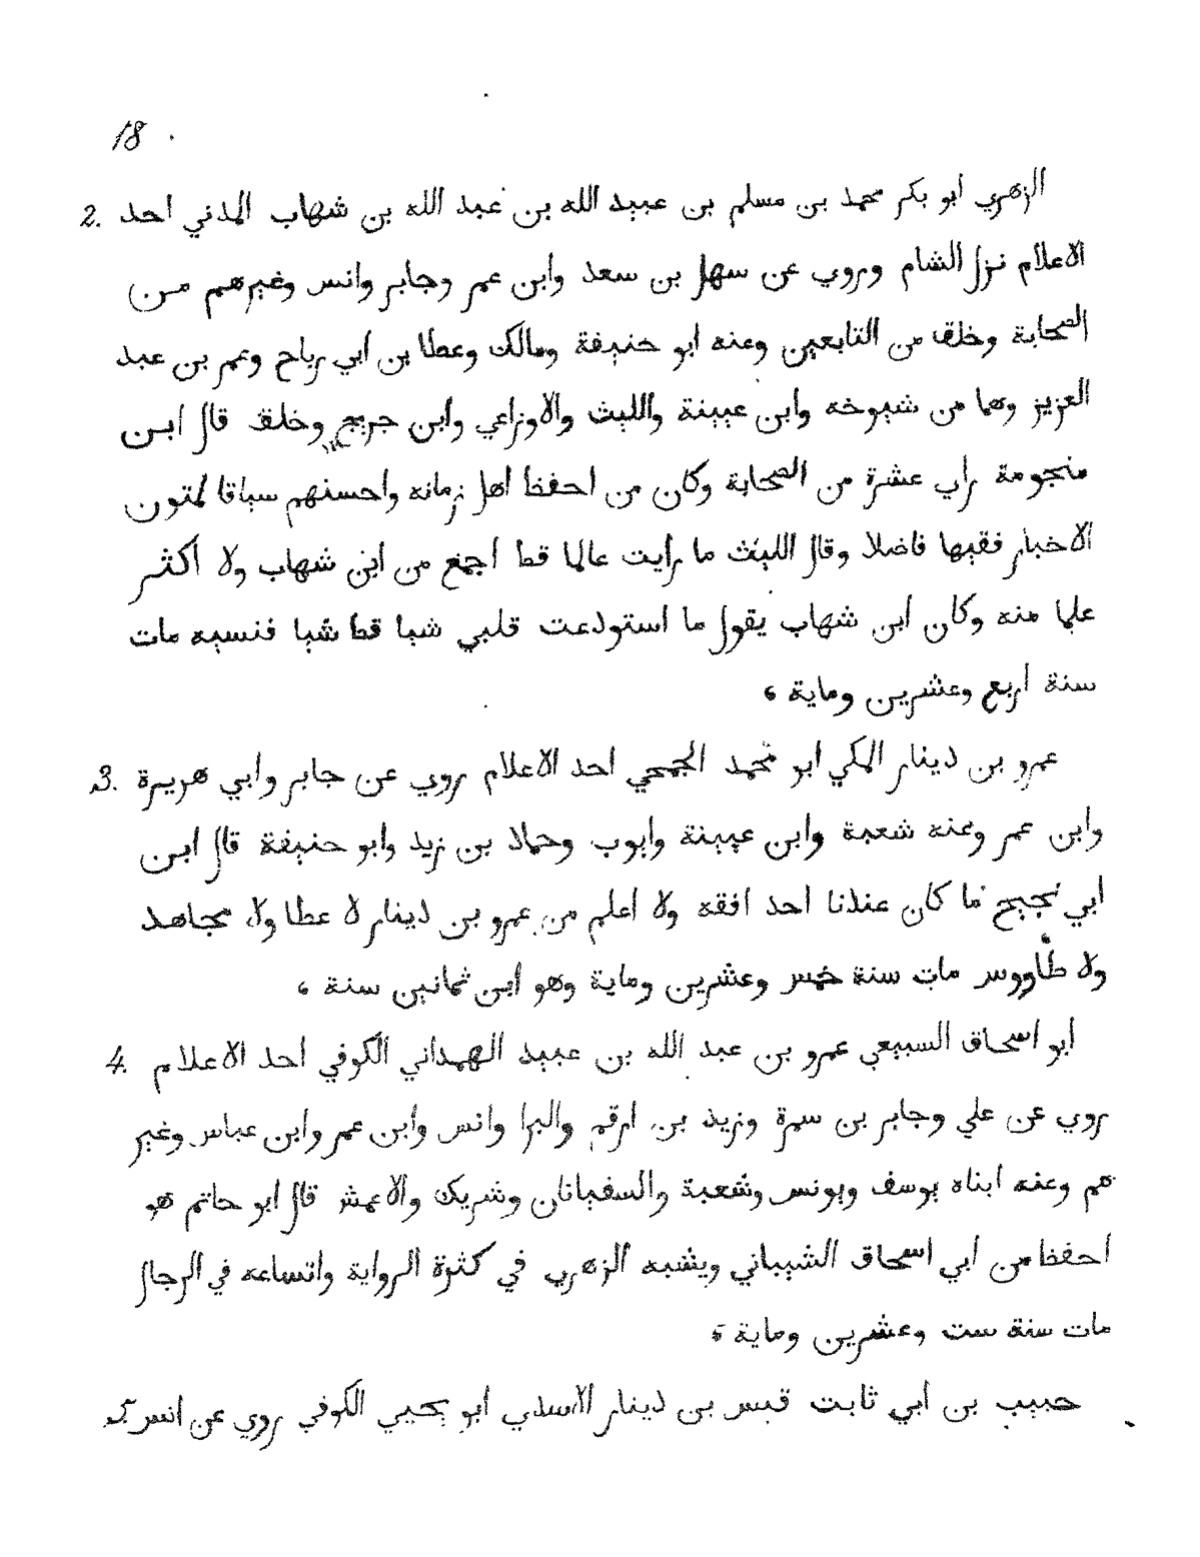 18
2. الزهري ابو بكر محمد بن مسلم بن عبيد الله بن عبد الله بن شهاب المدني احد
الاعلام نزل الشام وروي عن سهل بن سعد وابن عمر وجابر وانس وغيرهم من
الصحابة وخلق من التابعين وعنه ابو حنيفة ومالك وعطا بن أبي رباح وعمر بن عبد
العزيز وهما من شيوخه وابن عيينة والليث والاوزاعي وابن جريج وخلق قال ابن
منجومة راي عشرة من الصحابة وكان من احفظ اهل زمانه واحسنهم سياقا لمتون
الاخبار فقيها فاضلا وقال الليث ما رايت عالما قط أجمع من ابن شهاب ولا أكثر
علما منه وكان ابن شهاب يقول ما استودعت قلبي شيا قط شيا فنسيه مات
سنة اربع وعشرين وماية ،
3. عمرو بن دينار المكي ابو محمد الجمحي احد الاعلام روي عن جابر وابي هريرة
وابن عمر وعنه شعبة وابن عيينة وايوب وحماد بن زيد وابو حنيفة قال ابن
ابي نجيح ما كان عندنا احد افقه ولا اعلم من عمرو بن دينار لا عطا ولا مجاهد
ولا طاووس مات سنة خمس وعشرين وماية وهو ابن ثمانين سنة ،
4. أبو اسحاق السبيعي عمرو بن عبد الله بن عبيد الهمداني الكوفي أحد الاعلام
روي عن علي وجابر بن سمرة وزيد بن ارقم والبرا وانس وابن عمر وابن عباس وغير
هم وعنه ابناه يوسف ويونس وشعبة والسفيانان وشريك والاعمش قال ابو حاتم هو
احفظ من أبي اسحاق الشيباني ويشبه الزهري في كثرة الرواية واتساعه في الرجال
مات سنة ست وعشرين وماية ،
5. حبيب بن ابي ثابت قيس بن دينار الاسدي ابو يحيي الكوفي روي عن انس